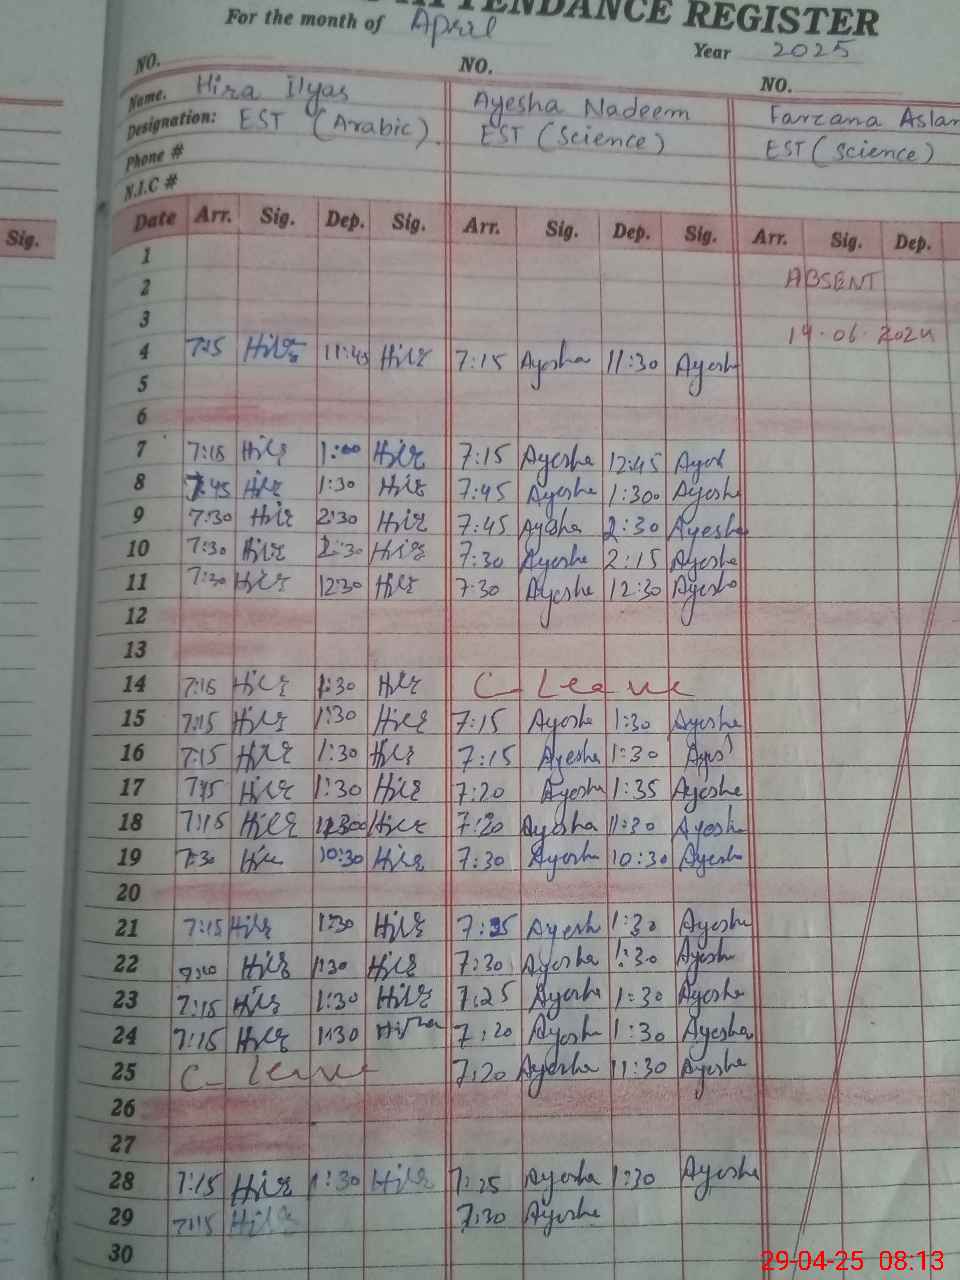 ATTENDANCE REGISTER
For the month of April
Year 2025
NO. NO. NO.
Name. Hira Ilyas Ayesha Nadeem Farzana Aslam
Designation: EST (Arabic) EST (Science) EST (Science)
Phone #
N.I.C #
Sig. Date Arr. Sig. Dep. Sig. Arr. Sig. Dep. Sig. Arr. Sig. Dep.
1
2 ABSENT
3 19.06.2024
4 7:15 Hira 11:45 Hira 7:15 Ayesha 11:30 Ayesha
5
6
7 7:15 Hira 1:00 Hira 7:15 Ayesha 12:45 Ayesh
8 7:45 Hira 1:30 Hira 7:45 Ayesha 1:30 Ayesha
9 7:30 Hira 2:30 Hira 7:45 Ayesha 2:30 Ayesha
10 7:30 Hira 2:30 Hira 7:30 Ayesha 2:15 Ayesha
11 7:30 Hira 12:30 Hira 7:30 Ayesha 12:30 Ayesha
12
13
14 7:15 Hira 1:30 Hira C-Leave
15 7:15 Hira 1:30 Hira 7:15 Ayesha 1:30 Ayesha
16 7:15 Hira 1:30 Hira 7:15 Ayesha 1:30
17 Hira 1:30 Hira 7:20 Ayesha 1:35 Ayesha
18 7:15 Hira Hira 7:20 Ayesha 11:30 Ayesha
19 7:30 Hira 10:30 Hira 7:30 Ayesha 10:30 Ayesha
20
21 7:15 Hira 1:30 Hira Ayesha 1:30 Ayesha
22 Hira 1:30 Hira 7:30 Ayesha 1:30 Ayesha
23 7:15 Hira 1:30 Hira 7:25 Ayesha 1:30 Ayesha
24 7:15 Hira 1:30 Hira 7:20 Ayesha 1:30 Ayesha
25 C-Leave 7:20 Ayesha 11:30 Ayesha
26
27
28 7:15 Hira 1:30 Hira 7:25 Ayesha 1:30 Ayesha
29 7:15 Hira 7:30 Ayesha
30
29-04-25 08:13